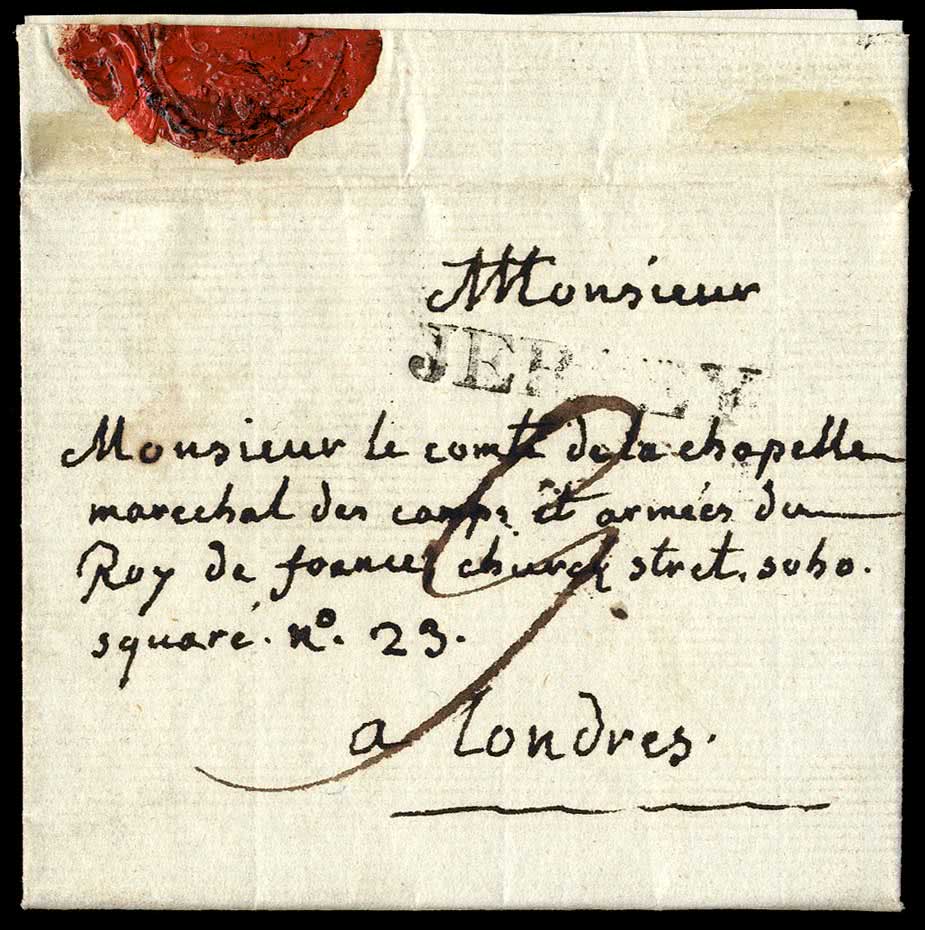 Monsieur
JERSEY
Monsieur le comte de la chapelle
marechal des camps et armées du
Roy de france church stret. soho.
squaré. nº. 23.
9
a londres.